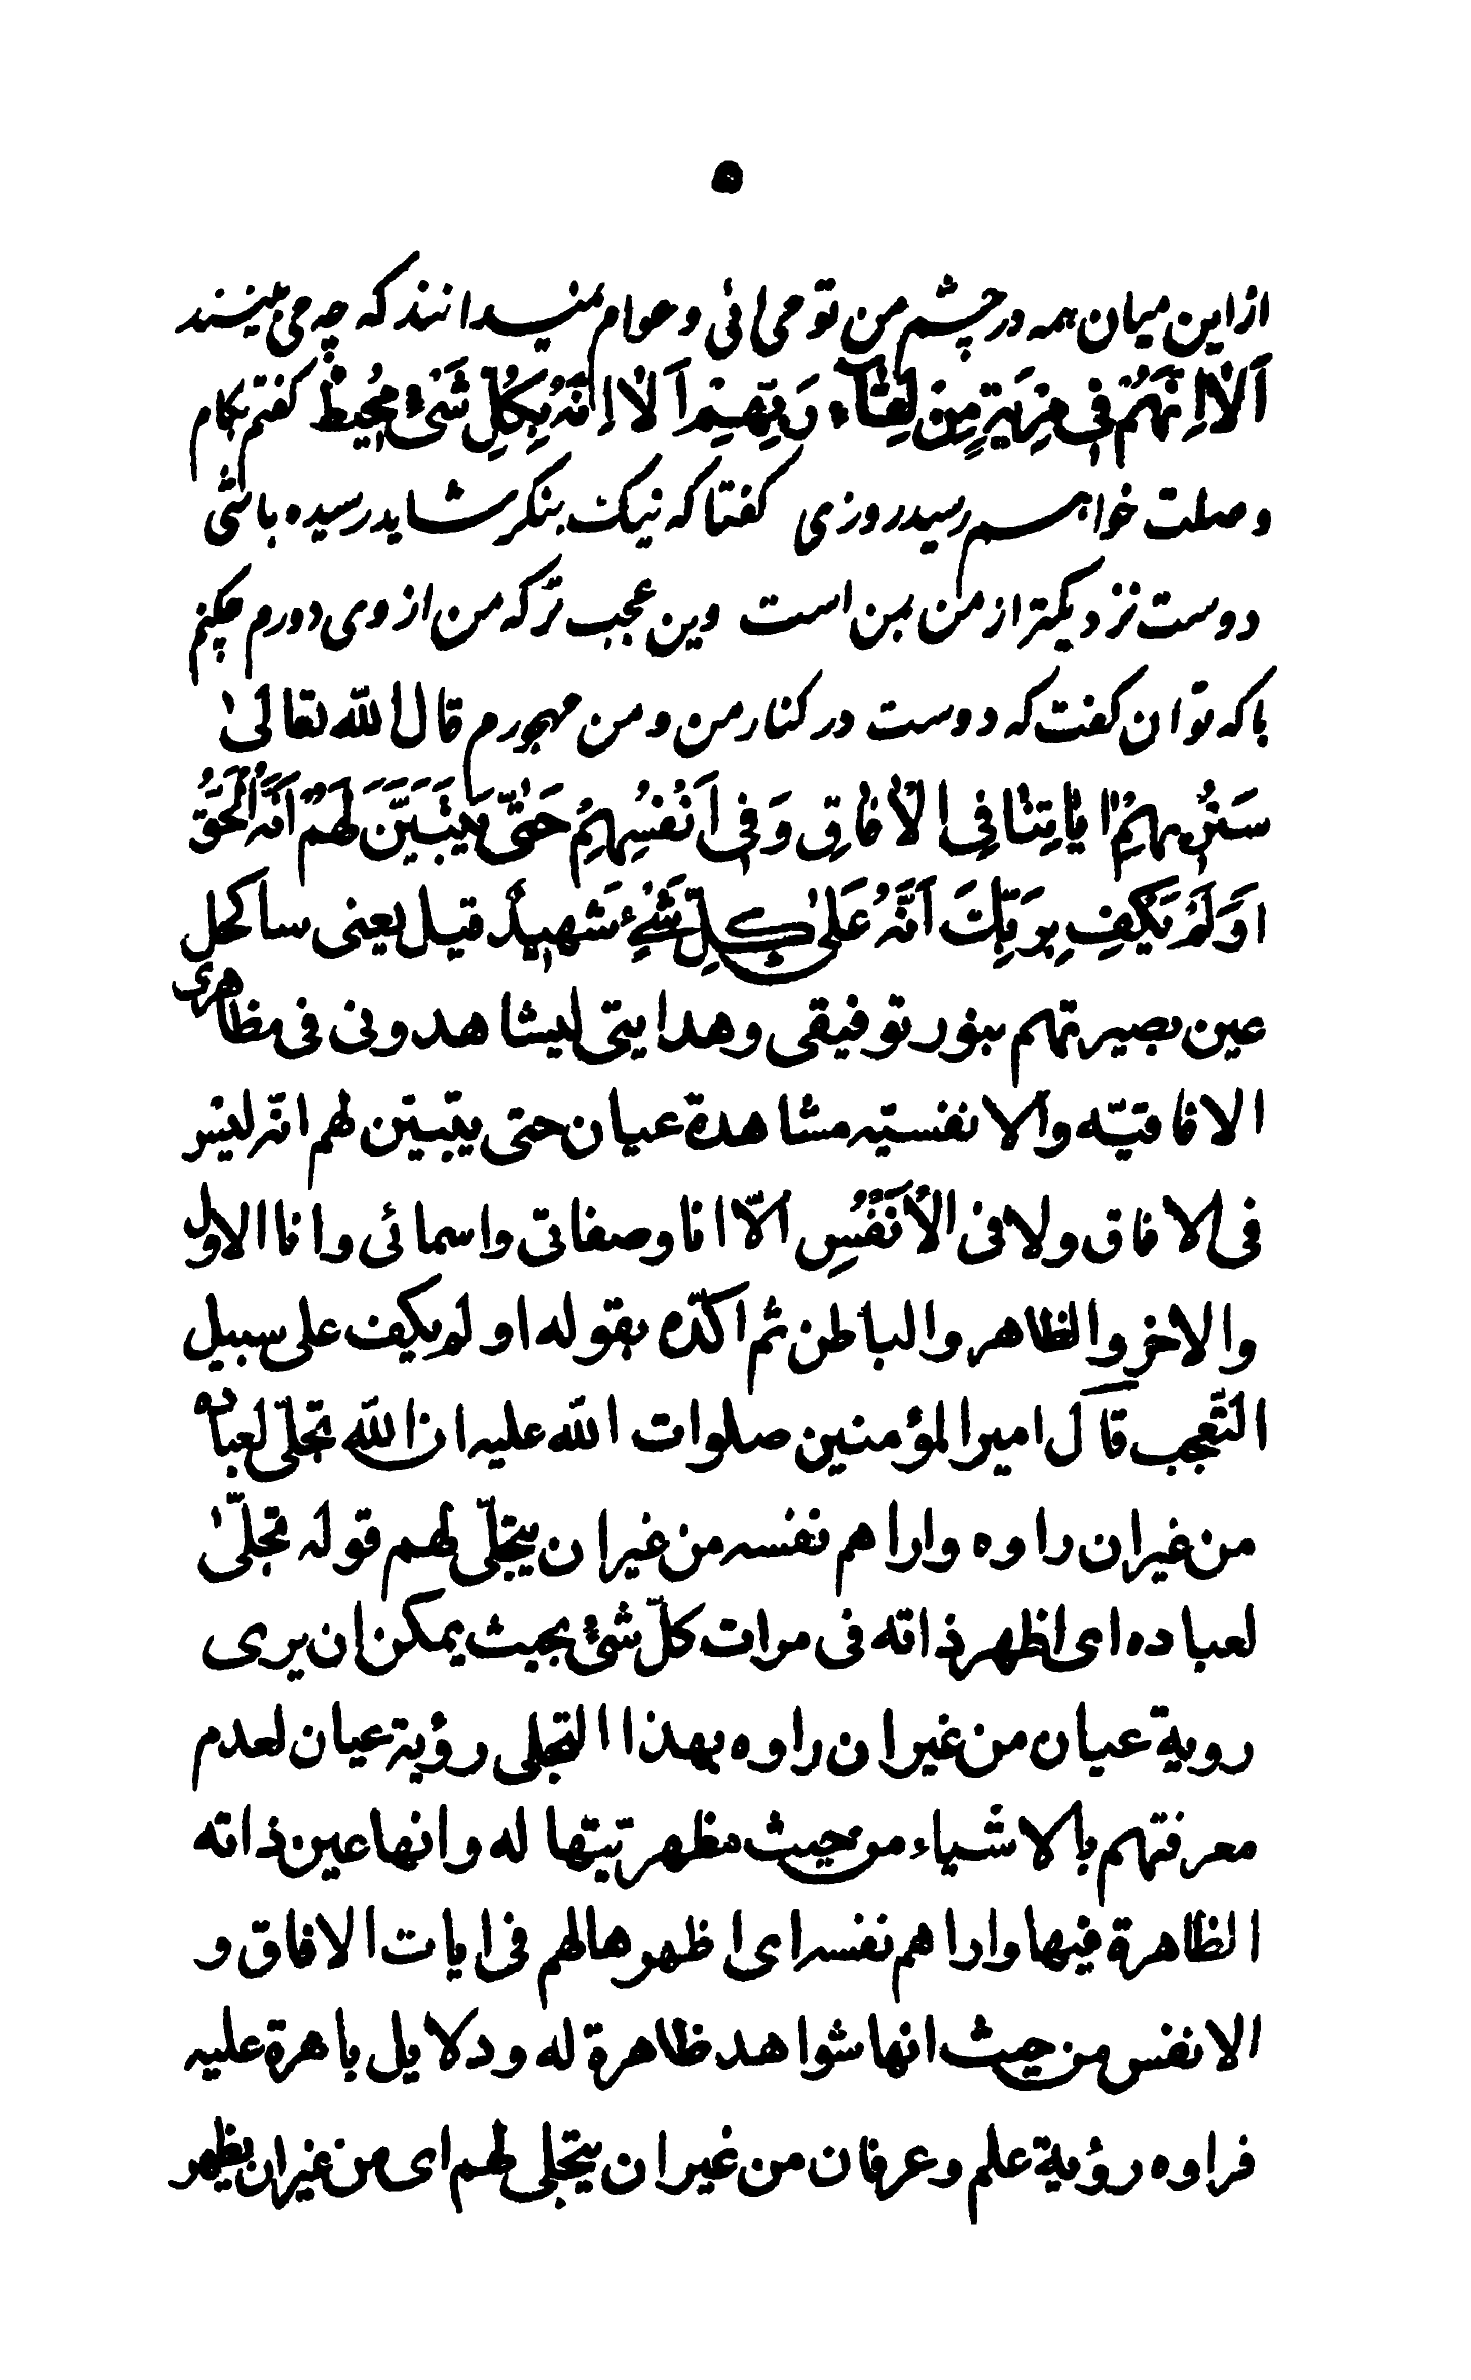 ۵
از این میان همه در چشم من تو می ائی و عوام نمیدانند که چه می بینند
اَلا اِنَّهُمْ فی مِرْیَةٍ مِنْ لِقآءِ رَبِّهِمْ اَلا اِنَّهُ بِکُلِّ شَیْءٍ مُحیطٌ گفتم بکام
وصلت خواهم رسید روزی گفتا که نیک بنکر شاید رسیده باشی
دوست نزدیکتر از من بمن است وین عجب تر که من از وی دورم چکنم
با که توان کفت که دوست در کنار من و من مهجورم قال الله تعالیٰ
سَنُریهِمْ ایاتِنا فِی الْافاقِ وَفی اَنْفُسِهِمْ حَتّیٰ یَتَبَیَّنَ لَهُمْ اَنَّهُ الْحَقُّ
اَوَلَمْ یَکْفِ بِرَبِّکَ اَنَّهُ عَلیٰ کُلِّ شَیْءٍ شَهیدٌ قیل یعنی ساکحل
عین بصیرتهم بنور توفیقی و هدایتی لیشاهدونی فی مظاهری
الافاقیّه والانفسیّه مشاهدة عیان حتی یتبین لهم انّه لیس
فی الافاق ولا فی الْاَنْفُسِ الّا انا وصفاتی واسمائی وانا الاول
والاخر والظاهر والباطن ثم اکدّه بقوله اولم یکف علی سبیل
التّعجب قال امیر المؤمنین صلوات الله علیه ان الله تجلّی لعباده
من غیر ان راوه واراهم نفسه من غیر ان یتجلّی لهم قوله تجلّیٰ
لعباده ای اظهر ذاته فی مرات کلّ شیٔ بحیث یمکن ان یری
رویة عیان من غیر ان راوه بهذا التجلی رؤیة عیان لعدم
معرفتهم بالاشیاء من حیث مظهریّتها له وانها عین ذاته
الظاهرة فیها واراهم نفسه ای اظهرها لهم فی ایات الافاق و
الانفس من حیث انها شواهد ظاهرة له ودلایل باهرة علیه
فراوه رؤیة علم وعرفان من غیر ان یتجلی لهم ای من غیر ان یظهر